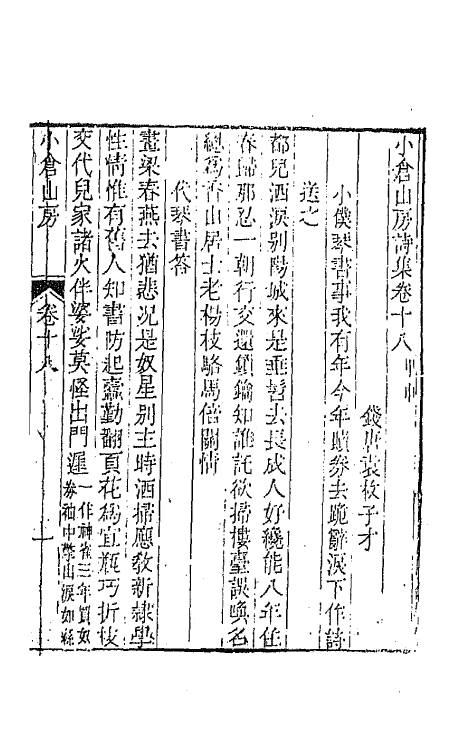 小倉山房詩集卷十八 甲申
錢唐袁枚子才
小僕琴書事我有年今年贖券去跪辭淚下作詩
送之
都兒洒淚別陽城來是垂髫去長成人好纔能八年住
春歸那忍一朝行交還鎖鑰知誰託欲掃樓臺誤喚名
總為香山居士老楊枝駱馬倍關情
代琴書答
畫梁春燕去猶悲況是奴星別主時洒掃應教新隸學
性情惟有舊人知書防起蠹勤翻頁花為宜瓶巧折枝
交代兒家諸火伴婆娑莫怪出門遲 一作神雀三年買奴
券袖中擎出淚如絲
小倉山房 卷十八 一